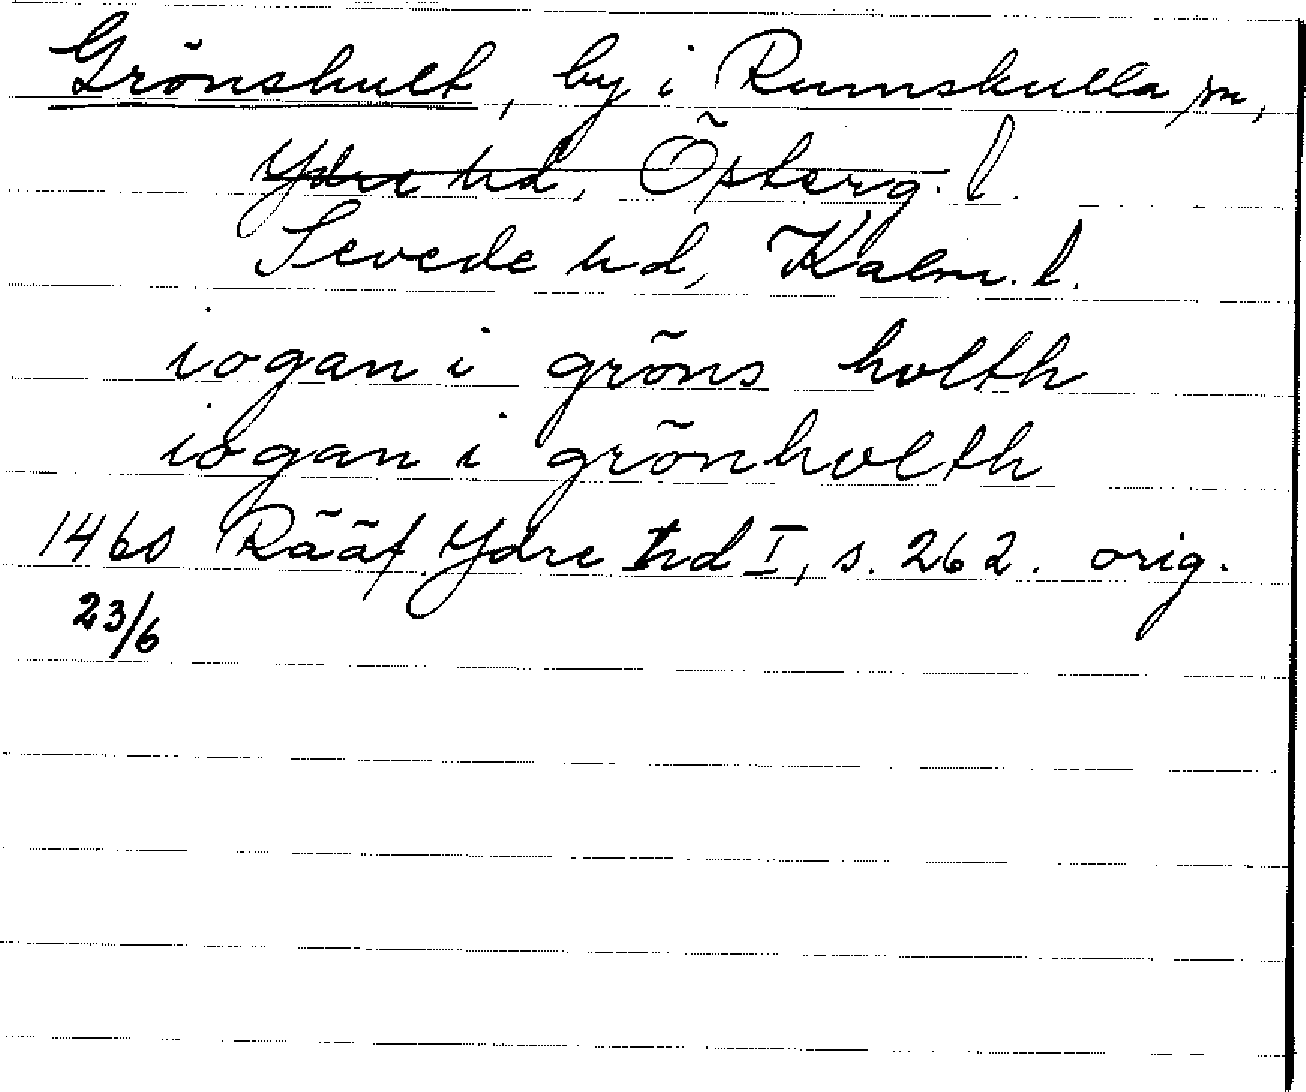 Grönshult, by i Rumskulla sn,
Ydre hd, Östergl.
Sevede hd, Kalm. l.
iogan i gröns holth
iogan i grönholth
1460 Rääf Ydre hd I, s. 262. orig.
23/6